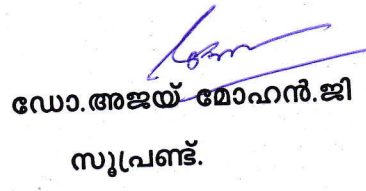 ഡോ.അജയ് മോഹൻ.ജി
സൂപ്രണ്ട്.